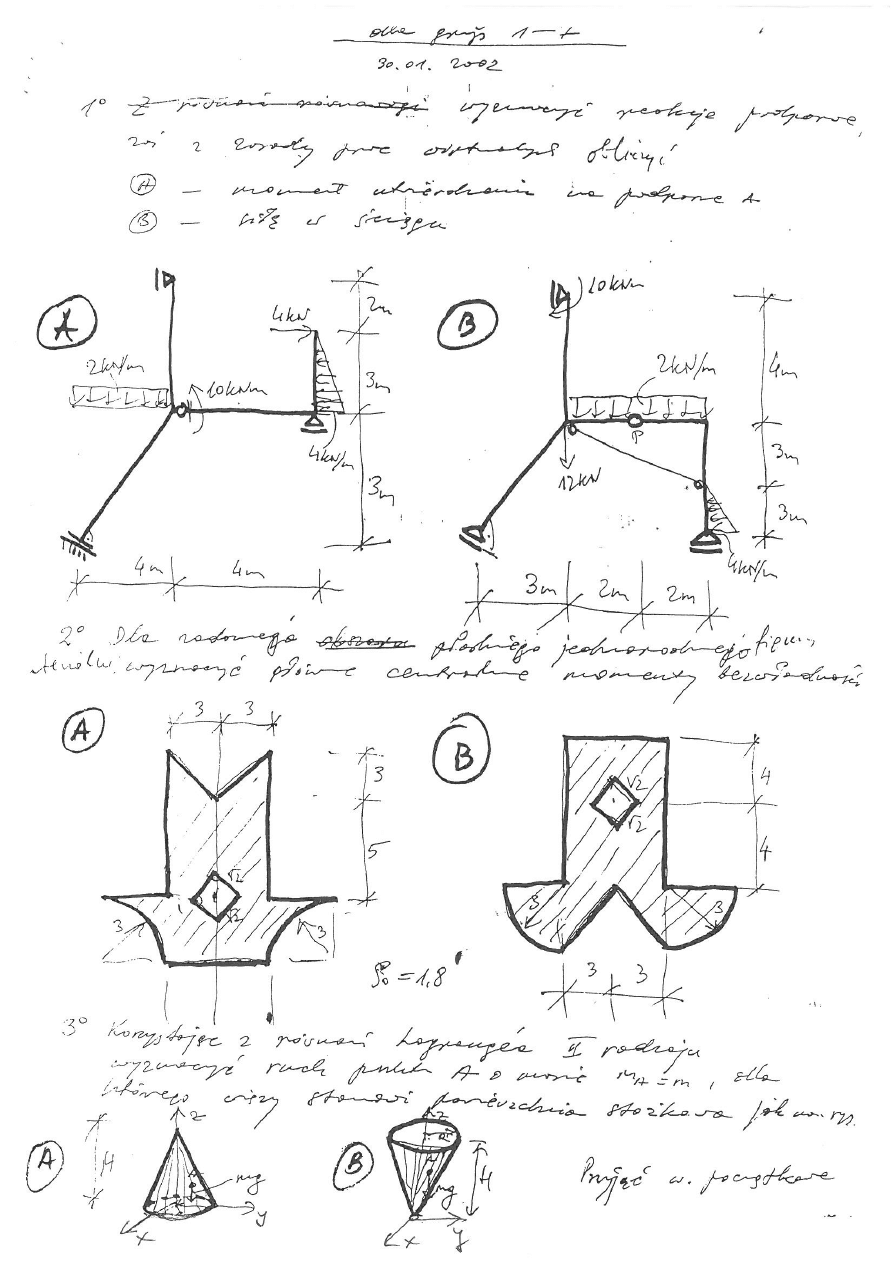 dla grup 1 – 7
30.01. 2002
1° Z równań równowagi wyznaczyć reakcje podporowe,
zaś z zasady prac obliczyć
A – moment utwierdzenia na podporze A
B – siłę w ścięgu
A
B
10kNm
4kN
2m
2kN/m
2kN/m
4m
10kNm
3m
P
4kN/m
12kN
3m
3m
3m
4kN/m
4m 4m
3m 2m 2m
2° Dla zadanego obszaru płaskiego jednorodnego figury
wyznaczyć główne centralne momenty bezwładności
A
3 3
B
3
√2
4
√2
5
√2
√2
4
3 3
3 3
ρ₀ = 1,8
3 3
3° Korzystając z równań Lagrange'a II rodzaju
wyznaczyć ruch punktu A o masie m_A = m, dla
którego więzy stanowi powierzchnia stożkowa jak na rys.
A
H
z
A
mg
x
y
B
z
R
A
mg
H
x
y
Przyjąć w. początkowe